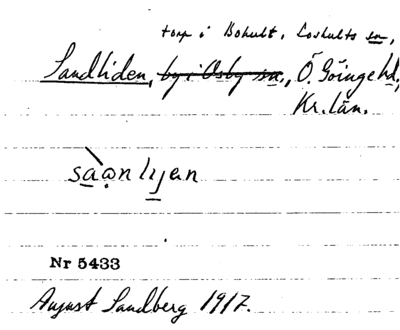 torp i Bohult, Loshults sn,
Sandliden, by i Osby sn., Ö. Göinge hd,
Kr. län.
saọn lıȷen
Nr 5433
August Sandberg 1917.